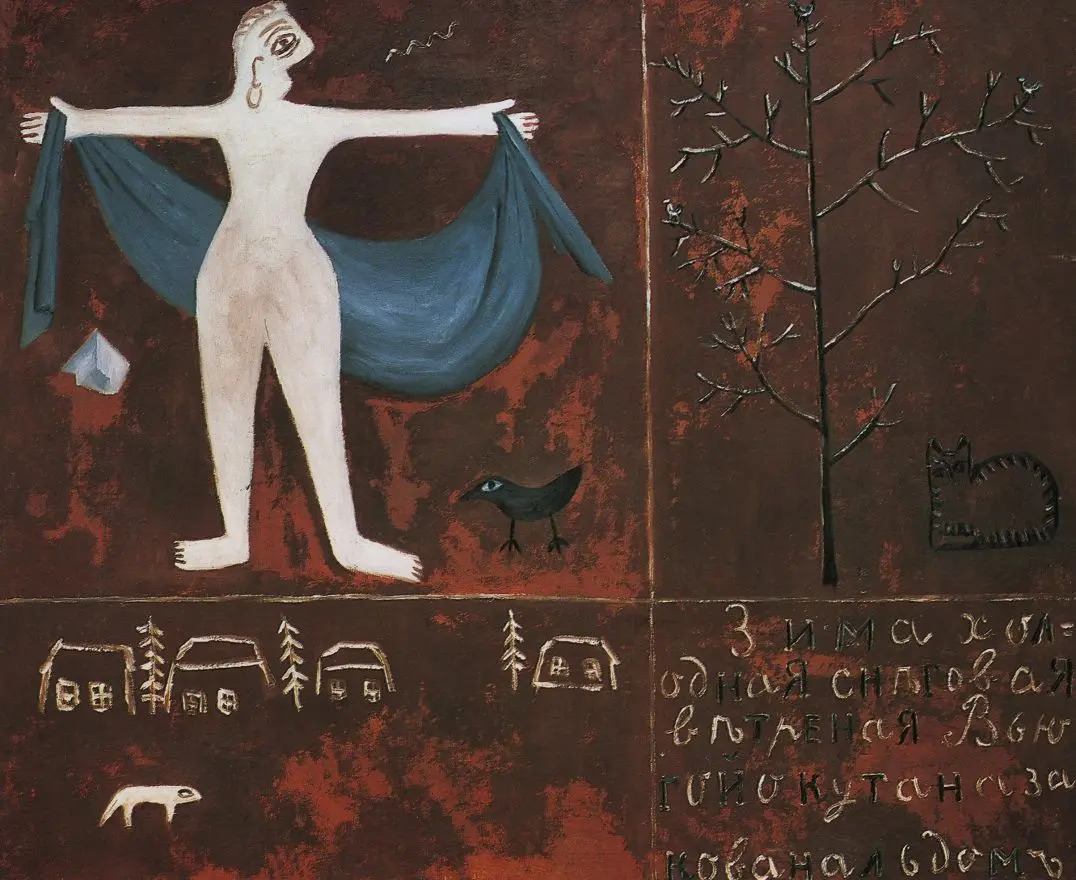 Зима хол=
одная снѣговая
вѣтреная Вью
гойокутаназа
кованальдомъ